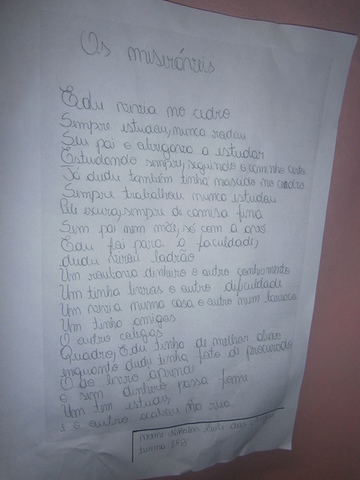 Os miseráveis
Edu vivia no cedro
Sempre estudou, nunca rodou
Seu pai o obrigava a estudar
Estudando sempre, seguindo o caminho certo
Já dudu também tinha nascido no cedro
Sempre trabalhou nunca estudou
Pele escura, sempre de camisa fina
Sem pai nem mãe, só com a avó
Edu foi para a faculdade,
dudu virou ladrão
Um roubava dinheiro e outro conhecimento
Um tinha livros e outro dificuldade
Um vivia numa casa e outro num barraco
Um tinha amigos
O outro colegas
Quadro, Edu tinha de melhor aluno
enquanto dudu tinha foto de procurado
O do livro aprova
o sem dinheiro passa fome
Um tem estudo,
e o outro acabou na rua